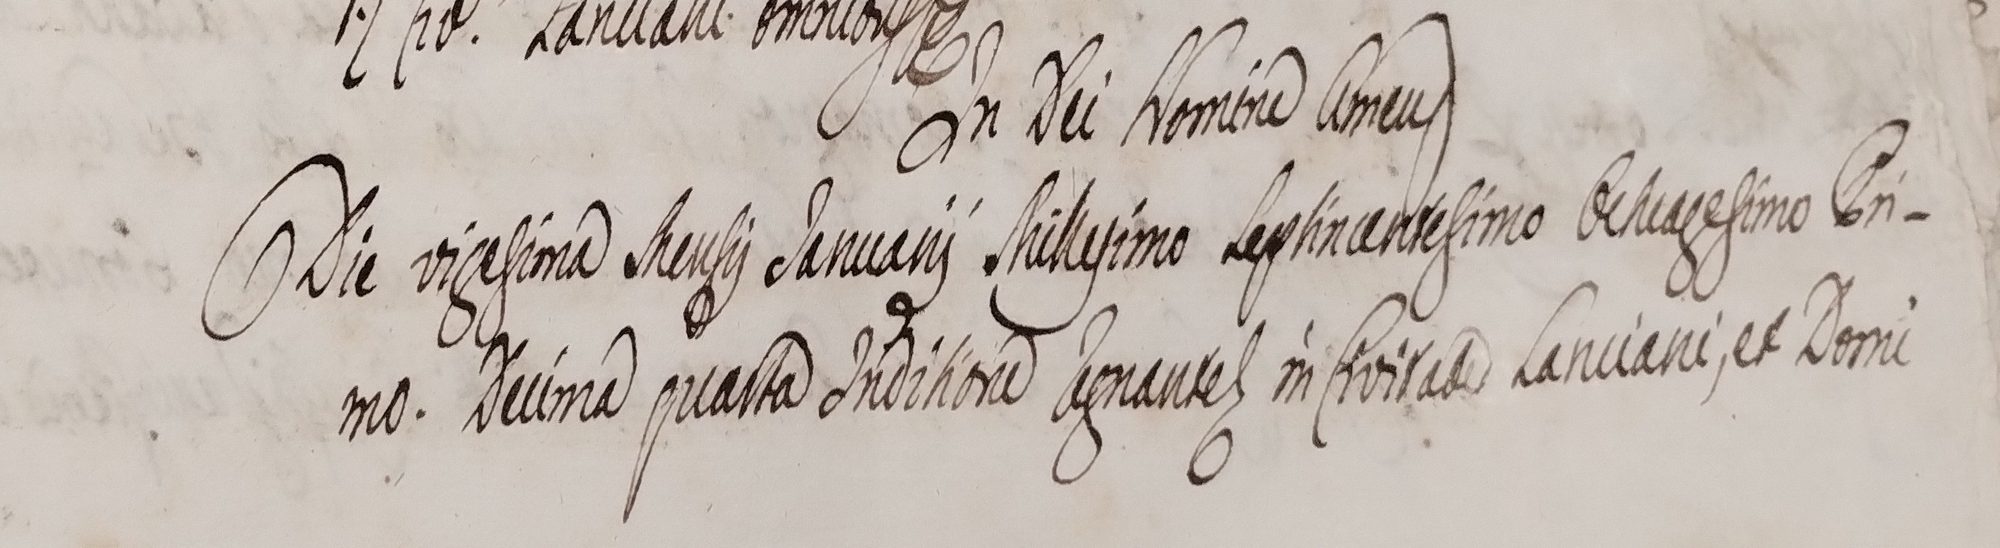 Lanciani omnibus
In Dei Nomine Amen
Die vigesima Mensis Januarij Millesimo Septincentesimo Octuagesimo Pri-
mo. Decima quarta Inditione Regnante in Civitate Lanciani, et Domi